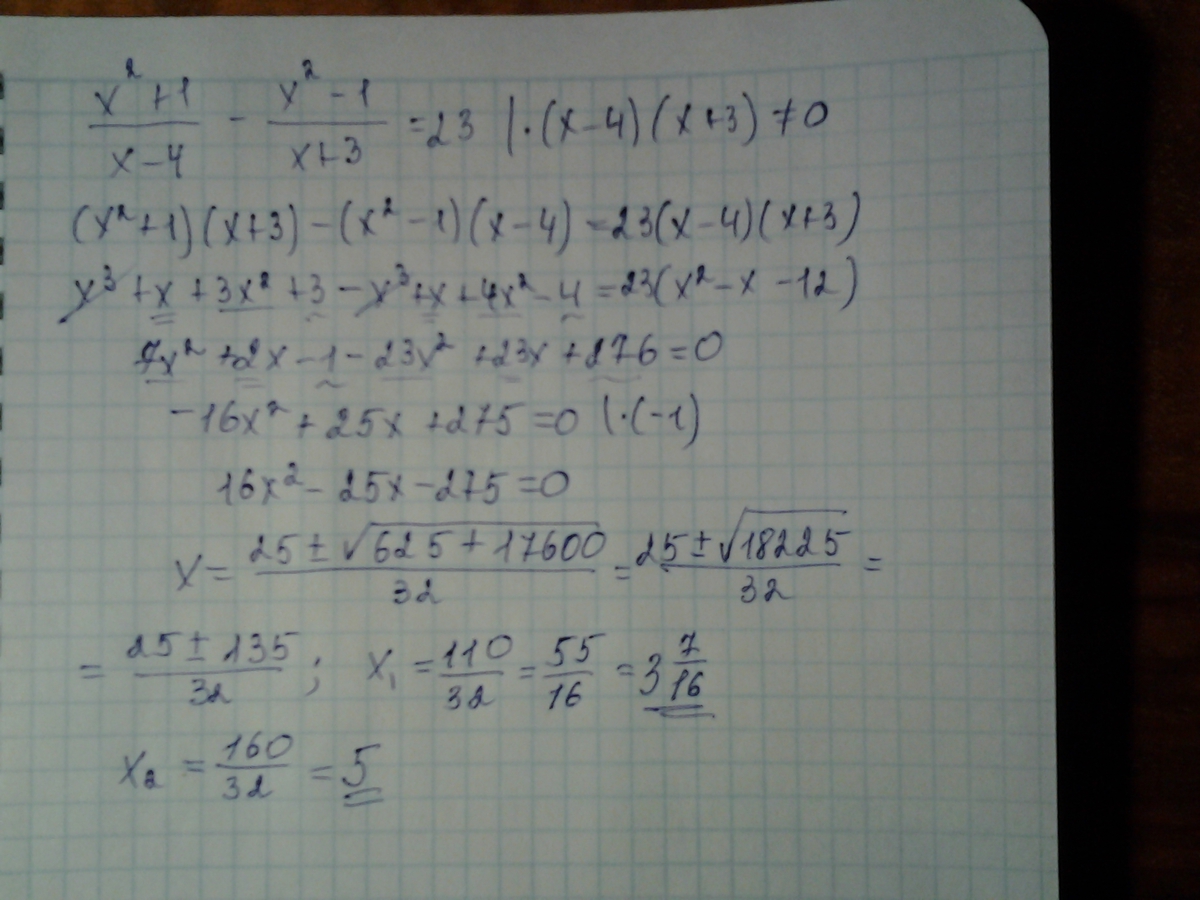 (x²+1)/(x-4) - (x²-1)/(x+3) =23 |·(x-4)(x+3)≠0
(x²+1)(x+3)-(x²-1)(x-4)=23(x-4)(x+3)
x³+x+3x²+3-x³+x+4x²-4=23(x²-x-12)
7x²+2x-1-23x²+23x+276=0
-16x²+25x+275=0 |·(-1)
16x²-25x-275=0
x= (25±√(625+17600))/32 = (25±√18225)/32 =
= (25±135)/32 ; x₁ = 110/32 = 55/16 = 3 7/16
x₂ = 160/32 = 5